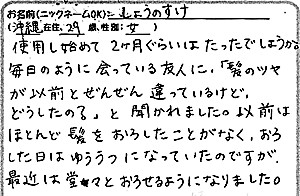 お名前(ニックネームOK)：しょうのすけ
(沖縄 在住、29 歳、性別：女 )
使用し始めて2ヶ月ぐらいはたったでしょうか
毎日のように会っている友人に、「髪のツヤ
が以前とぜんぜん違っているけど、
どうしたの？」と聞かれました。以前は
ほとんど髪をおろしたことがなく、おろ
した日はゆううつになっていたのですが、
最近は堂々とおろせるようになりました。